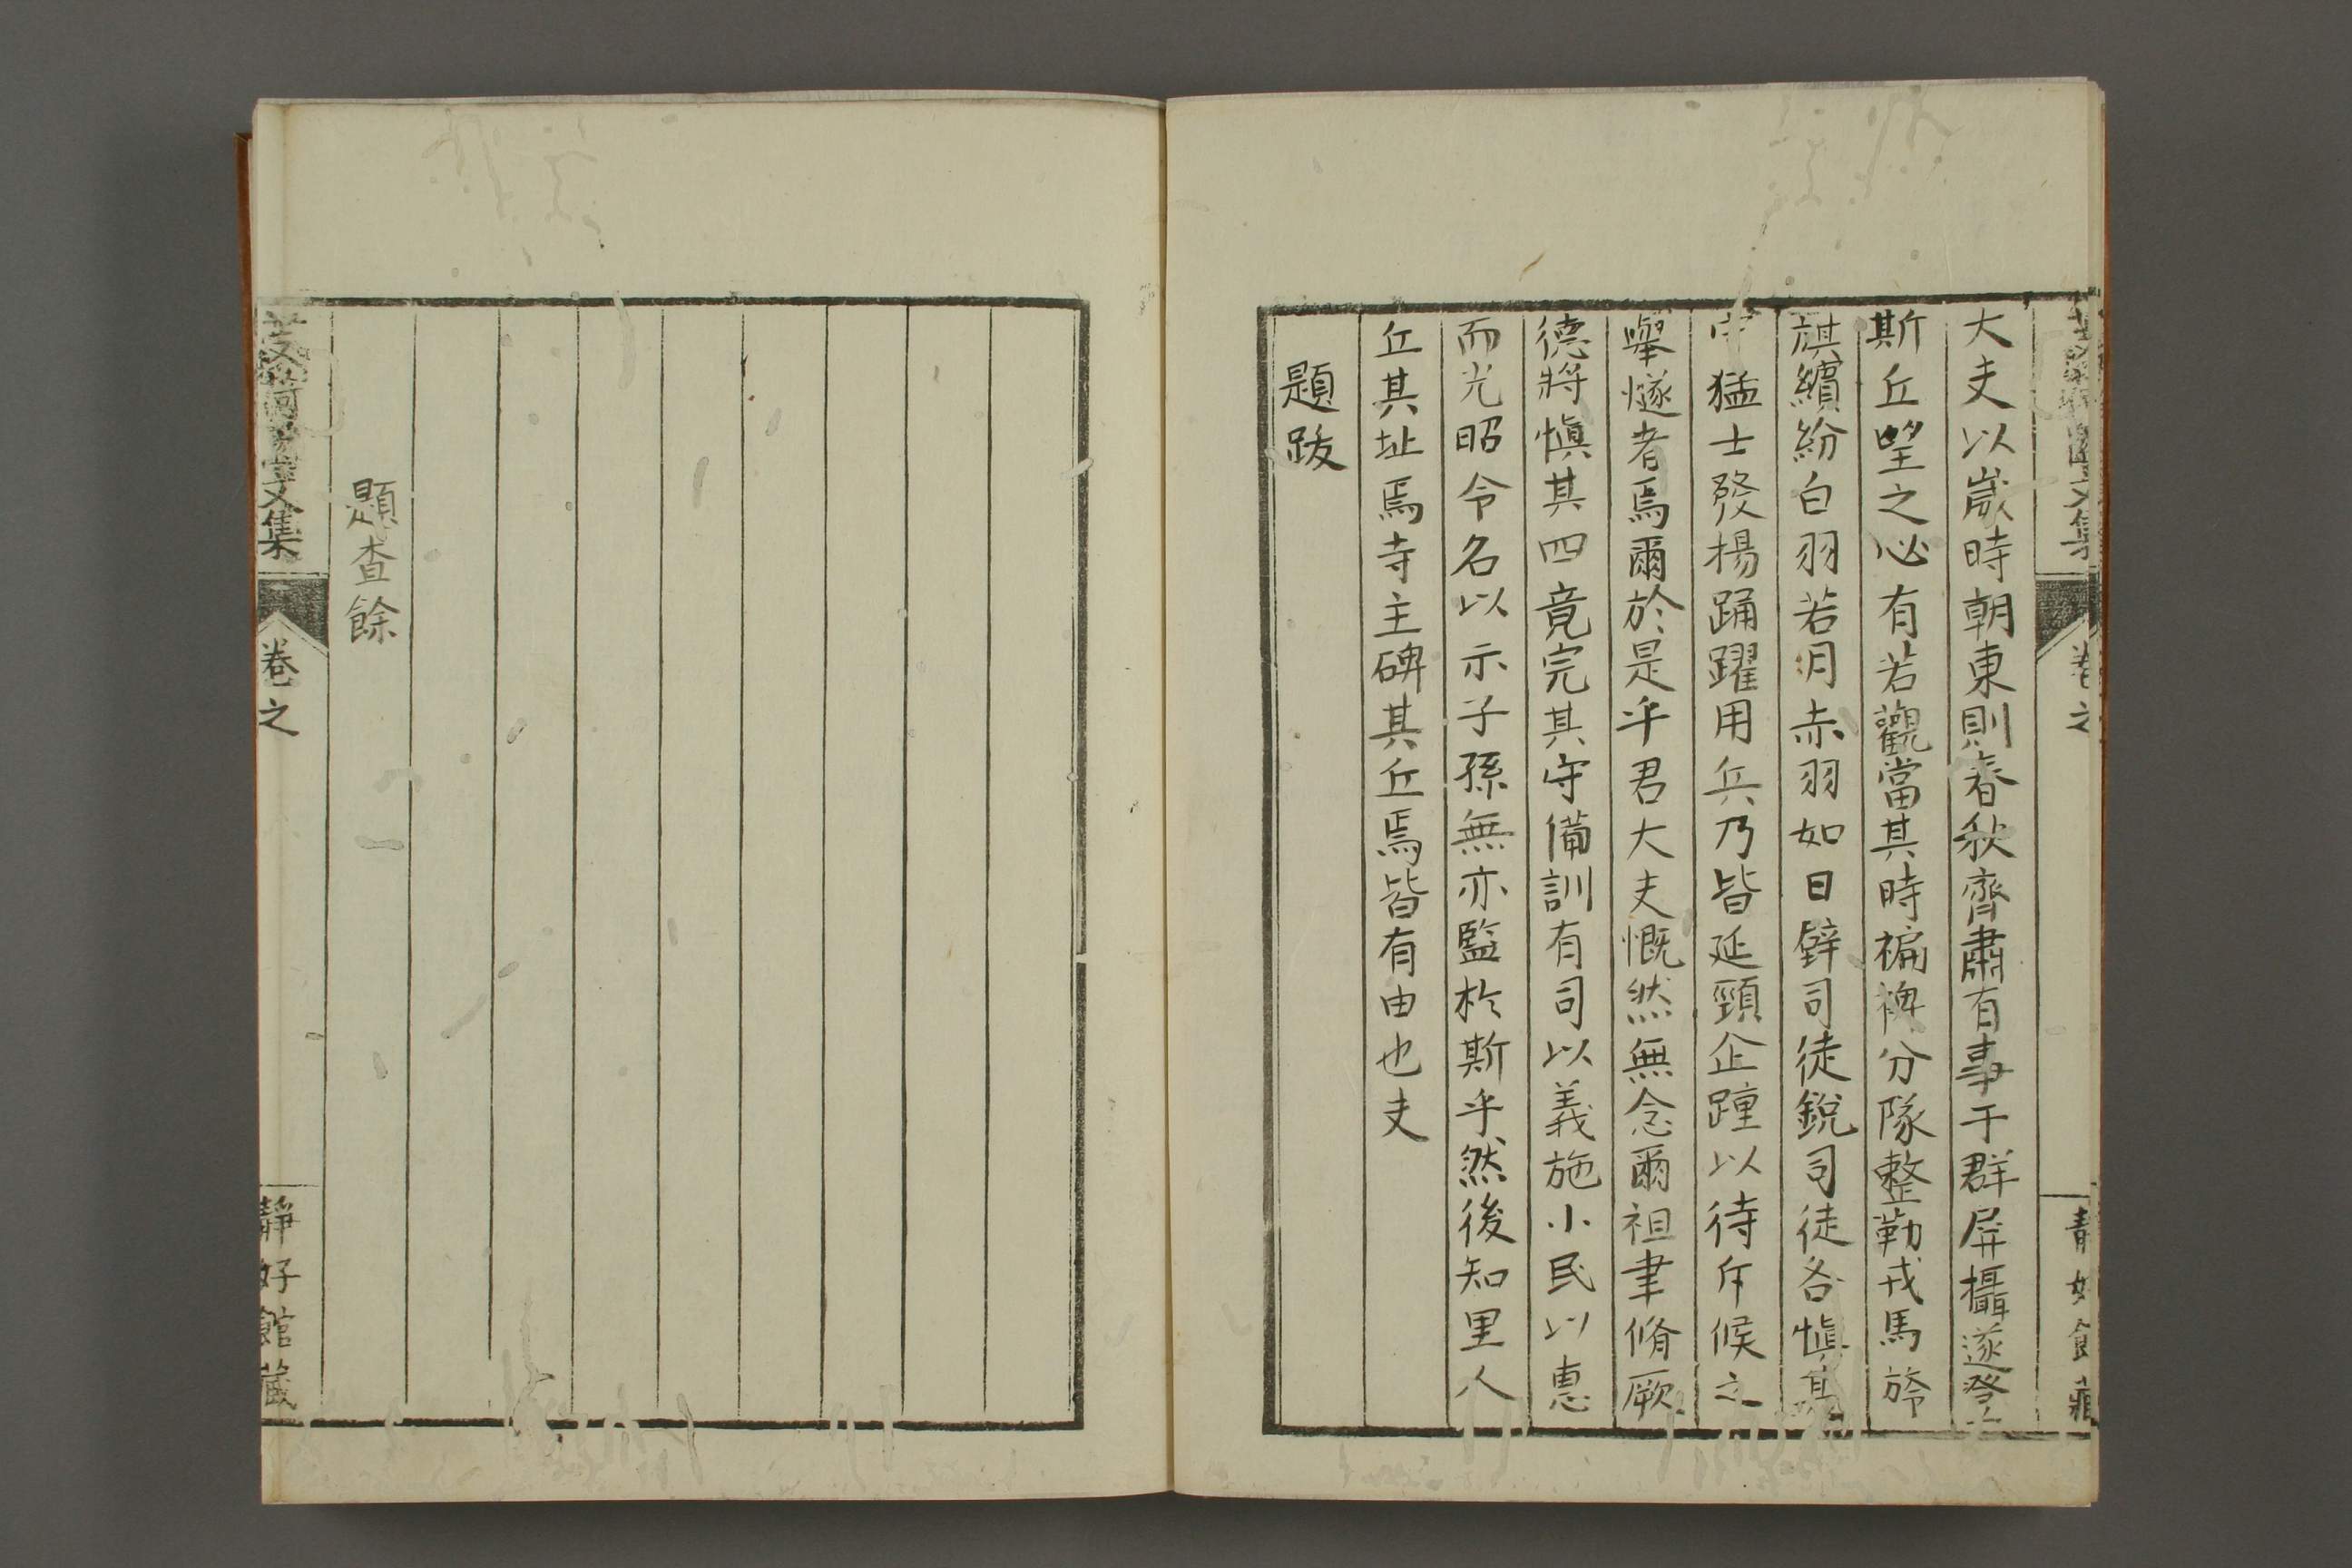 大夫以嵗時朝東則春秋齊肅有事于群屏攝遂登
斯丘望之必有若觀當其時褊裨分隊整勒戎馬旍
旗繽紛白羽若月赤羽如日辟司徒銳司徒各慎其
中猛士發揚踊躍用兵乃皆延頸企踵以待斥候之
舉燧者焉爾於是乎君大夫慨然無念爾祖聿脩厥
德將慎其四竟完其守備訓有司以義施小民以惠
而光昭令名以示子孫無亦監於斯乎然後知里人
丘其址焉寺主碑其丘焉皆有由也夫
題跋
卷之
題査餘
芰荷園文集
卷之
靜好館藏